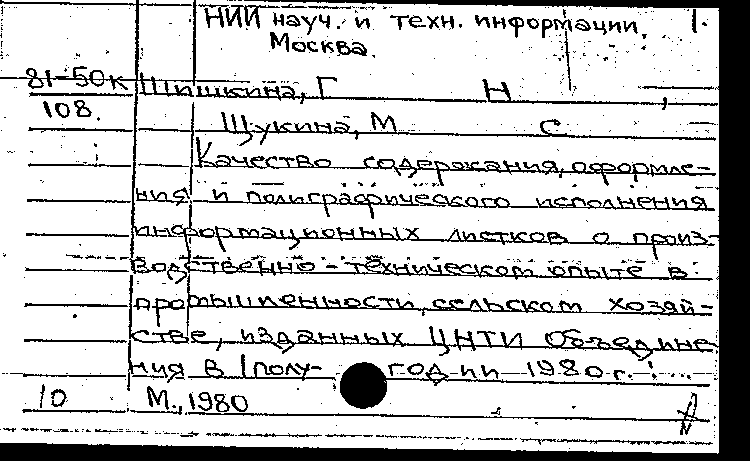 НИИ науч. и техн. информации, 1.
Москва.
81-50к Шишкина, Г Н ,
108. Щукина, М С
Качество содержания, оформле-
ния и полиграфического исполнения
информационных листков о произ-
водственно-техническом опыте в
промышленности, сельском хозяй-
стве, изданных ЦНТИ Объедине
ния в 1 полу- годии 1980 г. : ...
10 М., 1980